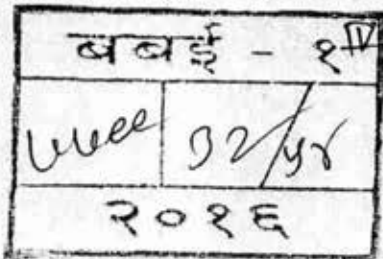 बबई - १ IV
७७९९ ३२/५४
२०१६